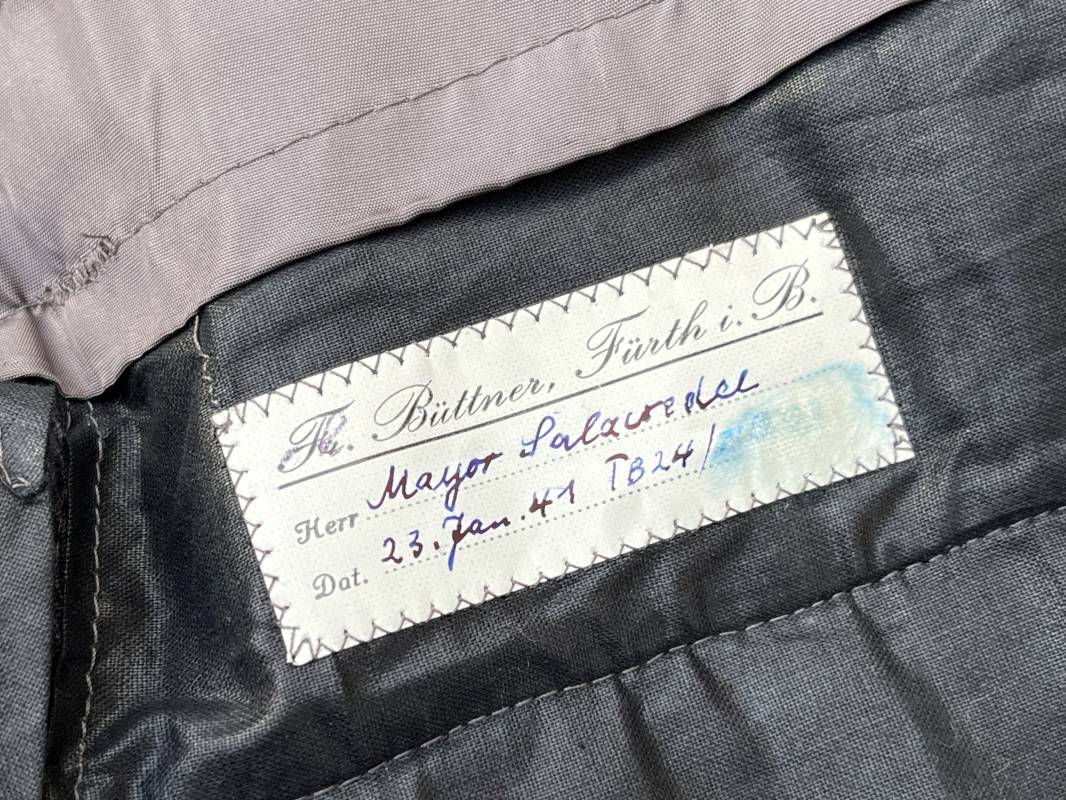 Th. Büttner, Fürth i. B.
Herr Mayor
Dat. 23. Jan. 41 TB24/